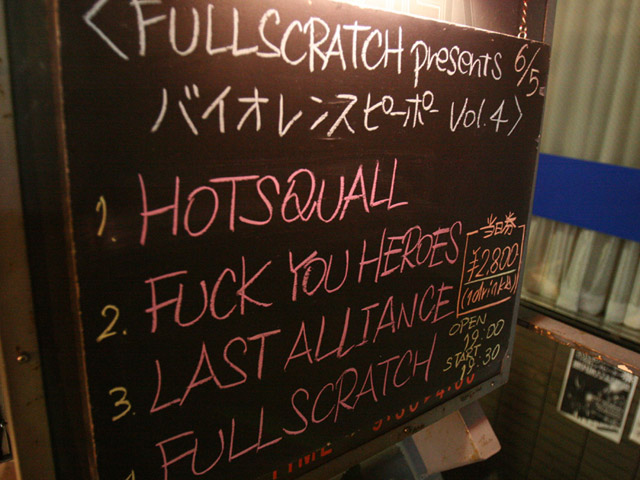 <FULLSCRATCH presents 6/5
バイオレンスピーポー Vol.4>
1. HOTSQUALL
2. FUCK YOU HEROES
3. LAST ALLIANCE
4 FULLSCRATCH
当日券
¥2,800
(1drink込)
OPEN
19:00
START
19:30
TIME